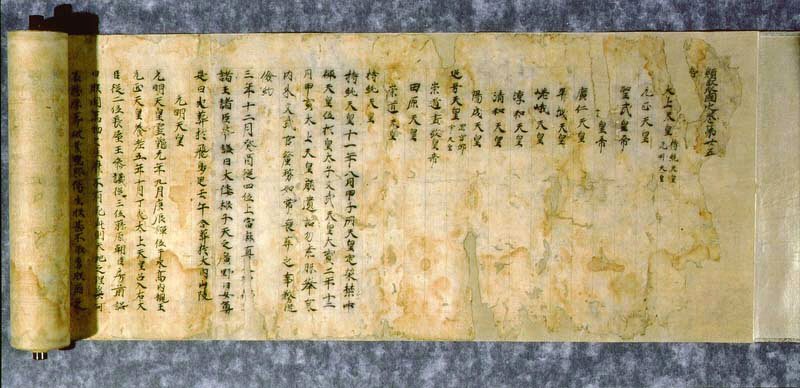 類聚國史巻第廿五
太上天皇 持統天皇 元明天皇
元正天皇
聖武皇帝
皇帝
廣仁天皇
平城天皇
嵯峨天皇
淳和天皇
清和天皇
陽成天皇
追号天皇
崇道盡敬皇帝
田原天皇
崇道天皇
持統天皇
持統天皇十一年八月甲子朔天皇定策禁中
禪天皇位於皇太子文武天皇大寶二年十二
月甲寅太上天皇崩遺詔勿素服擧哀
内外文武官釐務如常喪葬之事務從
儉約
三年十二月癸酉從四位上當麻真
諸王諸臣奉誄曰大倭根子天之廣野日女尊
是日火葬於飛鳥岡壬午合葬於大内山陵
元明天皇
元明天皇靈龜元年九月庚辰禪位于氷高内親王
元正天皇養老五年十月丁亥太上天皇召入右大
臣從二位長屋王參議從三位藤原朝臣房前詔
曰朕聞萬物之生靡不有死此則天地之理奚可
哀悲厚葬破業重服傷生朕甚不取焉朕